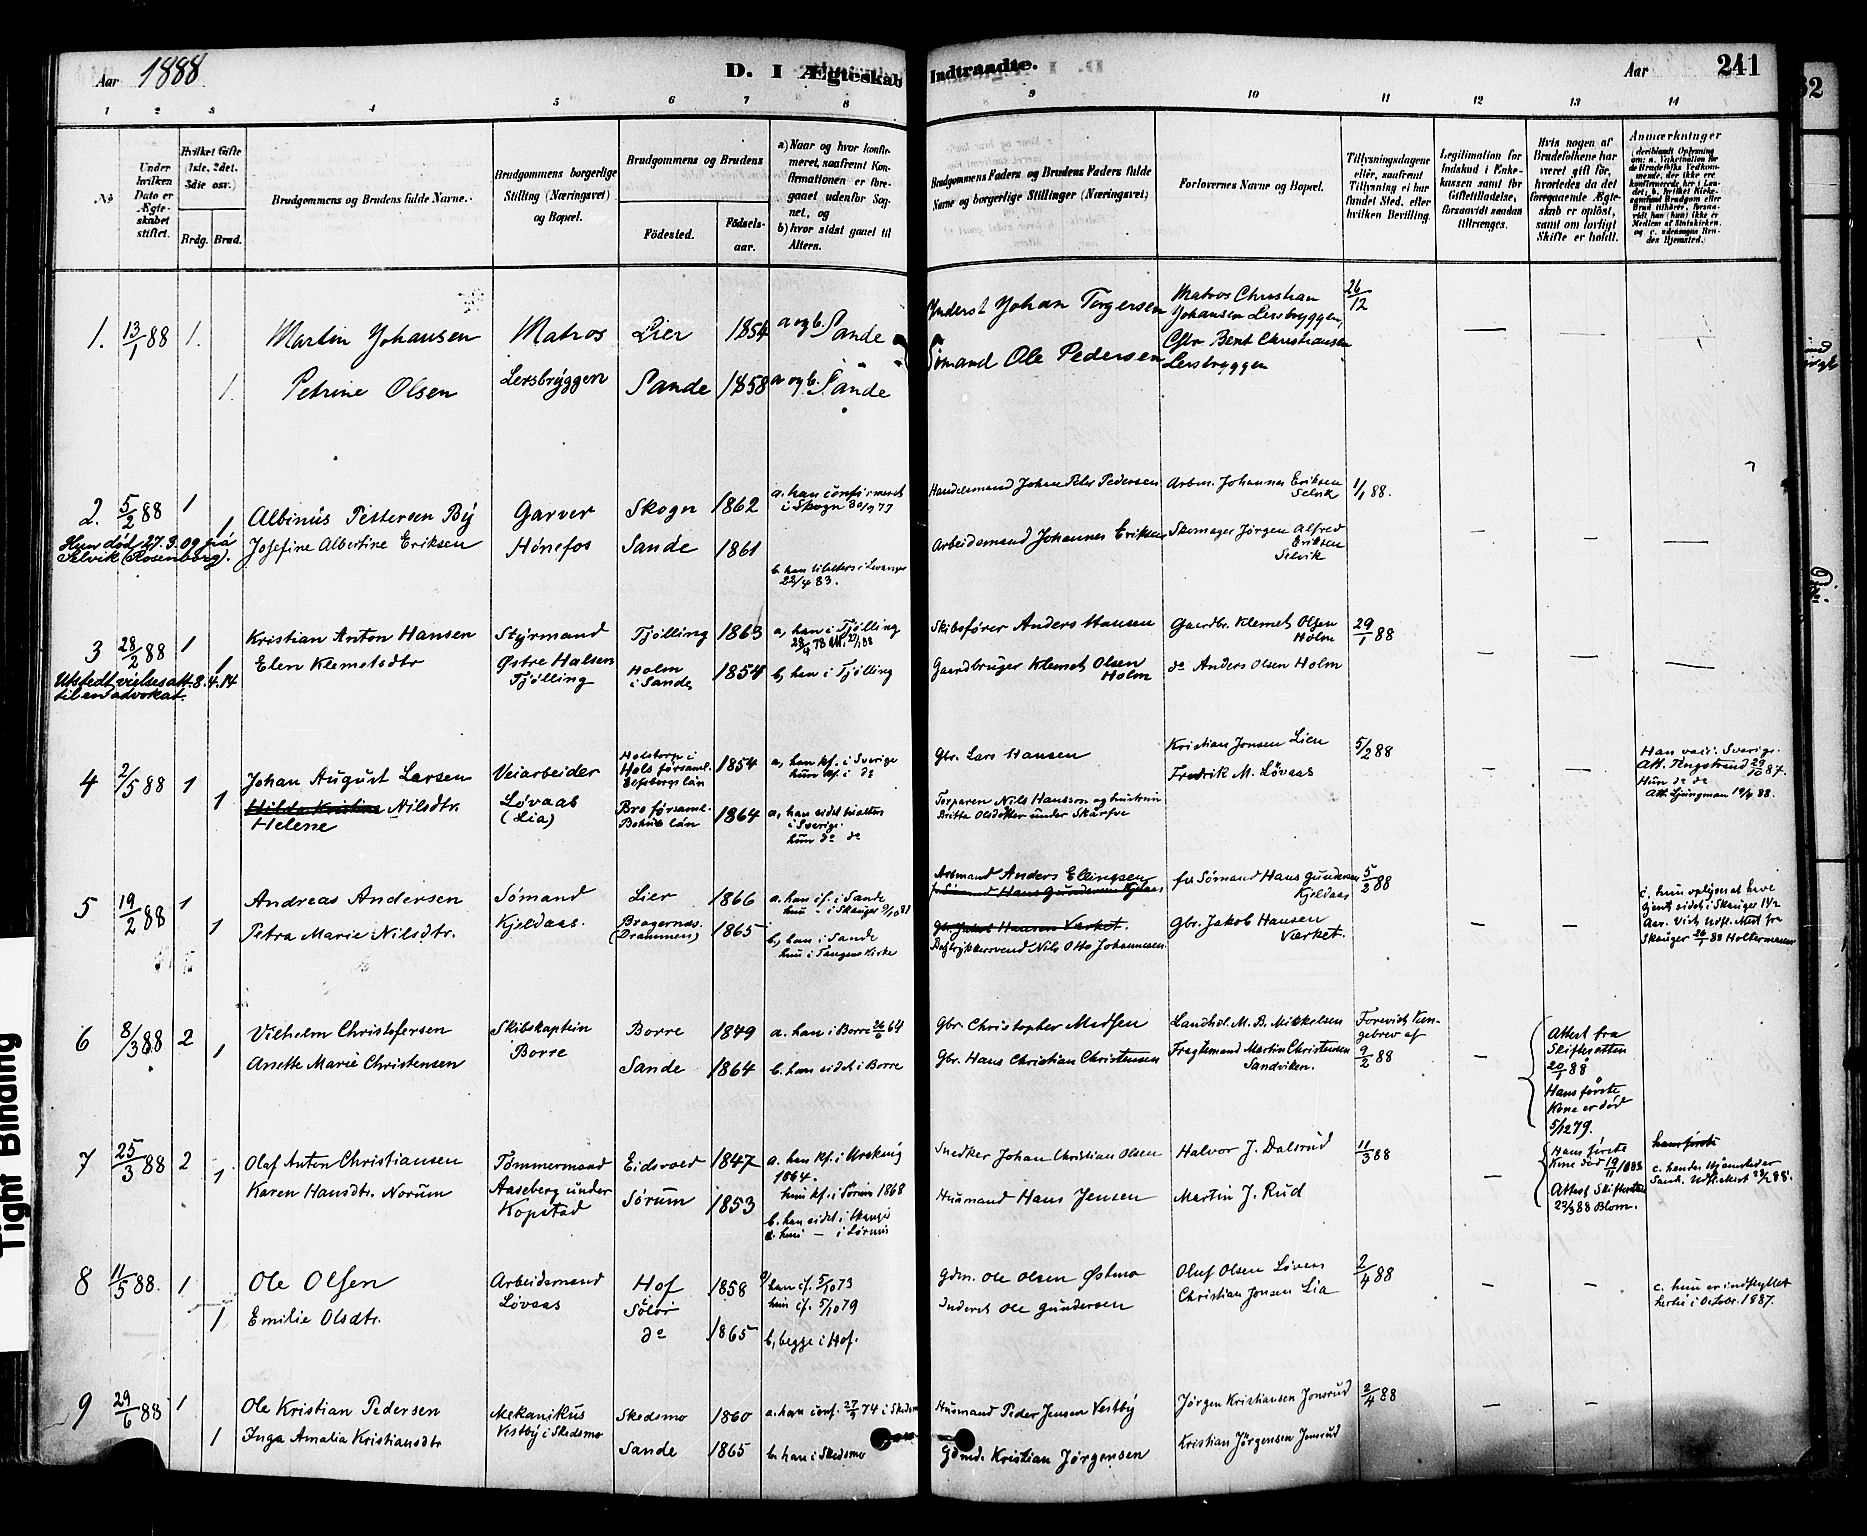 Aar 1888.
D. I Ægteskab Indtraadte.
Aar
241
1 2 3 4 5 6 7 8 9 10 11 12 13 14
No
Under hvilken Dato er Ægteskabet stiftet.
Hvilket Gifte (1ste, 2det, 3die osv.)
Brdg. Brud.
Brudgommens og Brudens fulde Navne.
Brudgommens borgerlige Stilling (Næringsvei) og Bopæl.
Brudgommens og Brudens
Fødested.
Fødselsaar.
a) Naar og hvor konfirmeret, saafremt Konfirmationen er foregaaet udenfor Sognet, og
b) hvor sidst gaaet til Alters.
Brudgommens Faders og Brudens Faders fulde Navne og borgerlige Stillinger (Næringsvei)
Forlovernes Navne og Bopæl.
Tillysningsdagene eller, saafremt Tillysning ei har fundet Sted, efter hvilken Bevilling.
Legitimation for Indskud i Enkekassen samt for Giftetilladelse, forsaavidt saadan tiltrænges.
Hvis nogen af Brudefolkene har været gift før, hvorledes da det foregaaende Ægteskab er opløst, samt om lovligt Skifte er holdt.
Anmærkninger
1. 13/1 88 1. Martin Johansen Matros Lier 1854 a og b. Sande
Inderst Johan Torgersen Matros Christian Johansen Lersbryggen, 26/12
1. Petrine Olsen Lersbryggen Sande 1858 a og b. Sande
Sømand Ole Pedersen Bent Christiansen Lersbryggen
2. 5/2 88 1 Albinus Pettersen By Garver Skogn 1862 a. han confirmeret i Skogn 30/9 77
Handelsmand Johan Peter Pedersen Arbm. Johannes Eriksen Selvik 1/1 88.
1 Josefine Albertine Eriksen Hønefos Sande 1861 b. han tilalters i Levanger 22/4 83.
Arbeidsmand Johannes Eriksen Skomager Jørgen Alfred Eriksen Selvik
Hun død 27.3.09 paa Selvik (Rosenborg).
3 28/2 88 1 Kristian Anton Hansen Styrmand Tjølling 1863 a, han i Tjølling
Skibsfører Anders Hansen Gaardbr. Klemet Olsen Holm 29/1 88
1 Elen Klemetsdtr Østre Halsen Tjølling Holm i Sande 1854 b, han i Tjølling
Gaardbruger Klemet Olsen Holm do Anders Olsen Holm
Utstedt vielsesatt. 8.4.14 til en advokat.
4 2/5 88 1 Johan August Larsen Veiarbeider Hols församl. Elfsborgs län 1854 a, han kf. i Sverige hun kf. i do
Gbr. Lars Hansen Kristian Jonsen Lien 5/2 88
Han vacc. i Sverige. Att. Tengstrand 29/10 87. Hun do do Att. Ljungman 19/4 88.
1 Hilda Kristine Nilsdtr. Helene Løvaas (Lia) Bro församl. Bohus län 1864 a, han sidst tilalters i Sverige. hun do do
Torparen Nils Hansson og hustrun Britta Olsdotter under Skärfve Fredrik M. Løvaas
5 19/2 88 1 Andreas Andersen Sømand Lier 1866 a. han cf. i Sande hun - i Skauger 9/10 81
Arbmand Anders Ellingsen
Sømand Hans Gundersen Kjeldaas
Sømand Hans Gundersen Kjeldaas 5/2 88
1 Petra Marie Nilsdtr. Kjeldaas. Bragernæs (Drammen) 1865 b, han i Sande hun i Tangens Kirke
Gbr. Jakob Hansen Værket.
Bogtrykkersvend Nils Otto Johannesen Gbr. Jakob Hansen Værket.
c, hun oplyses at have tjent sidst i Skauger 1½ Aar. Vide Udfl. Attest fra Skauger 26/1 88 Holtermann
6 8/3 88 2 Vilhelm Christofersen Skibskaptein Borre 1849 a. han i Borre 26/6 64
Gbr. Christopher Madsen Landhdl. M. B. Mikkelsen Forevist Kongebrev af 9/2 88
1 Anette Marie Christensen Borre Sande 1864 b. han sidst i Borre
Gbr. Hans Christian Christensen Fragtemand Martin Christensen Sandviken.
Attest fra Skifteretten 20/1 88 Hans første Kone er død 5/12 79.
7 25/3 88 2 Olaf Anton Christiansen Tømmermand Eidsvold 1847 a. han kf. i Urskoug 1864. hun kf. i Sørum 1868
Snedker Johan Christian Olsen Halvor J. Dalsrud 11/3 88
1 Karen Hansdtr. Norum Aaseberg under Kopstad Sørum 1853 b. han sidst i Skauger hun — i Sørum
Husmand Hans Jensen Martin J. Rud
Hans første Kone død 19/11 1883 Attest Skifteretten 22/3 88 Blom.
hans første
c. hendes Hjemsted er Sande. Udflattest 28/2 88.
8 11/5 88. 1 Ole Olsen Arbeidsmand Hof Solør 1858 a, han cf. 5/10 73 hun cf. 5/10 79
Gdm. Ole Olsen Østmo Oluf Olsen Løvaas 2/4 88
1 Emilie Olsdtr. Løvaas do 1865 b, begge i Hof.
Inderst Ole Gundersen Christian Jonsen Lia
c. hun er indflyttet hertil i Octobr. 1887.
9 29/6 88 1 Ole Kristian Pedersen Mekanikus Skedsmo 1860 a. han conf. 27/9 74 i Skedsmo
Husmand Peder Jensen Vestby Jørgen Kristiansen Jonsrud 2/4 88
1 Inga Amalia Kristiansdtr Vestby i Skedsmo Sande 1865 b. han i Skedsmo
Gdmd. Kristian Jørgensen Kristian Jørgensen Jonsrud
Tight Binding